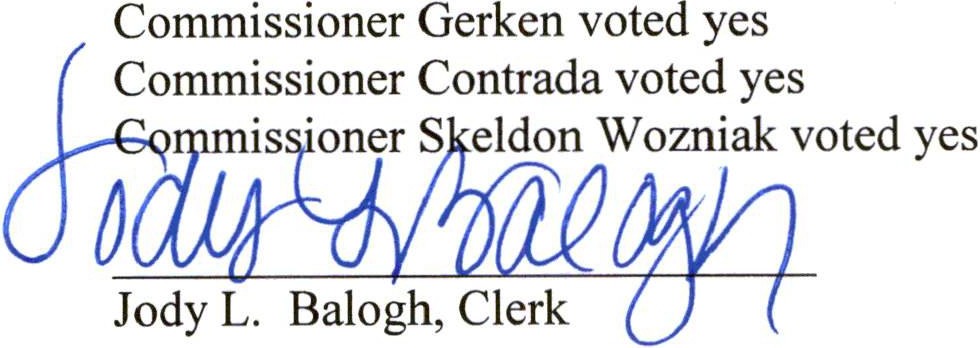 Commissioner Gerken voted yes
Commissioner Contrada voted yes
Commissioner Skeldon Wozniak voted yes
Jody L Balogh
Jody L. Balogh, Clerk